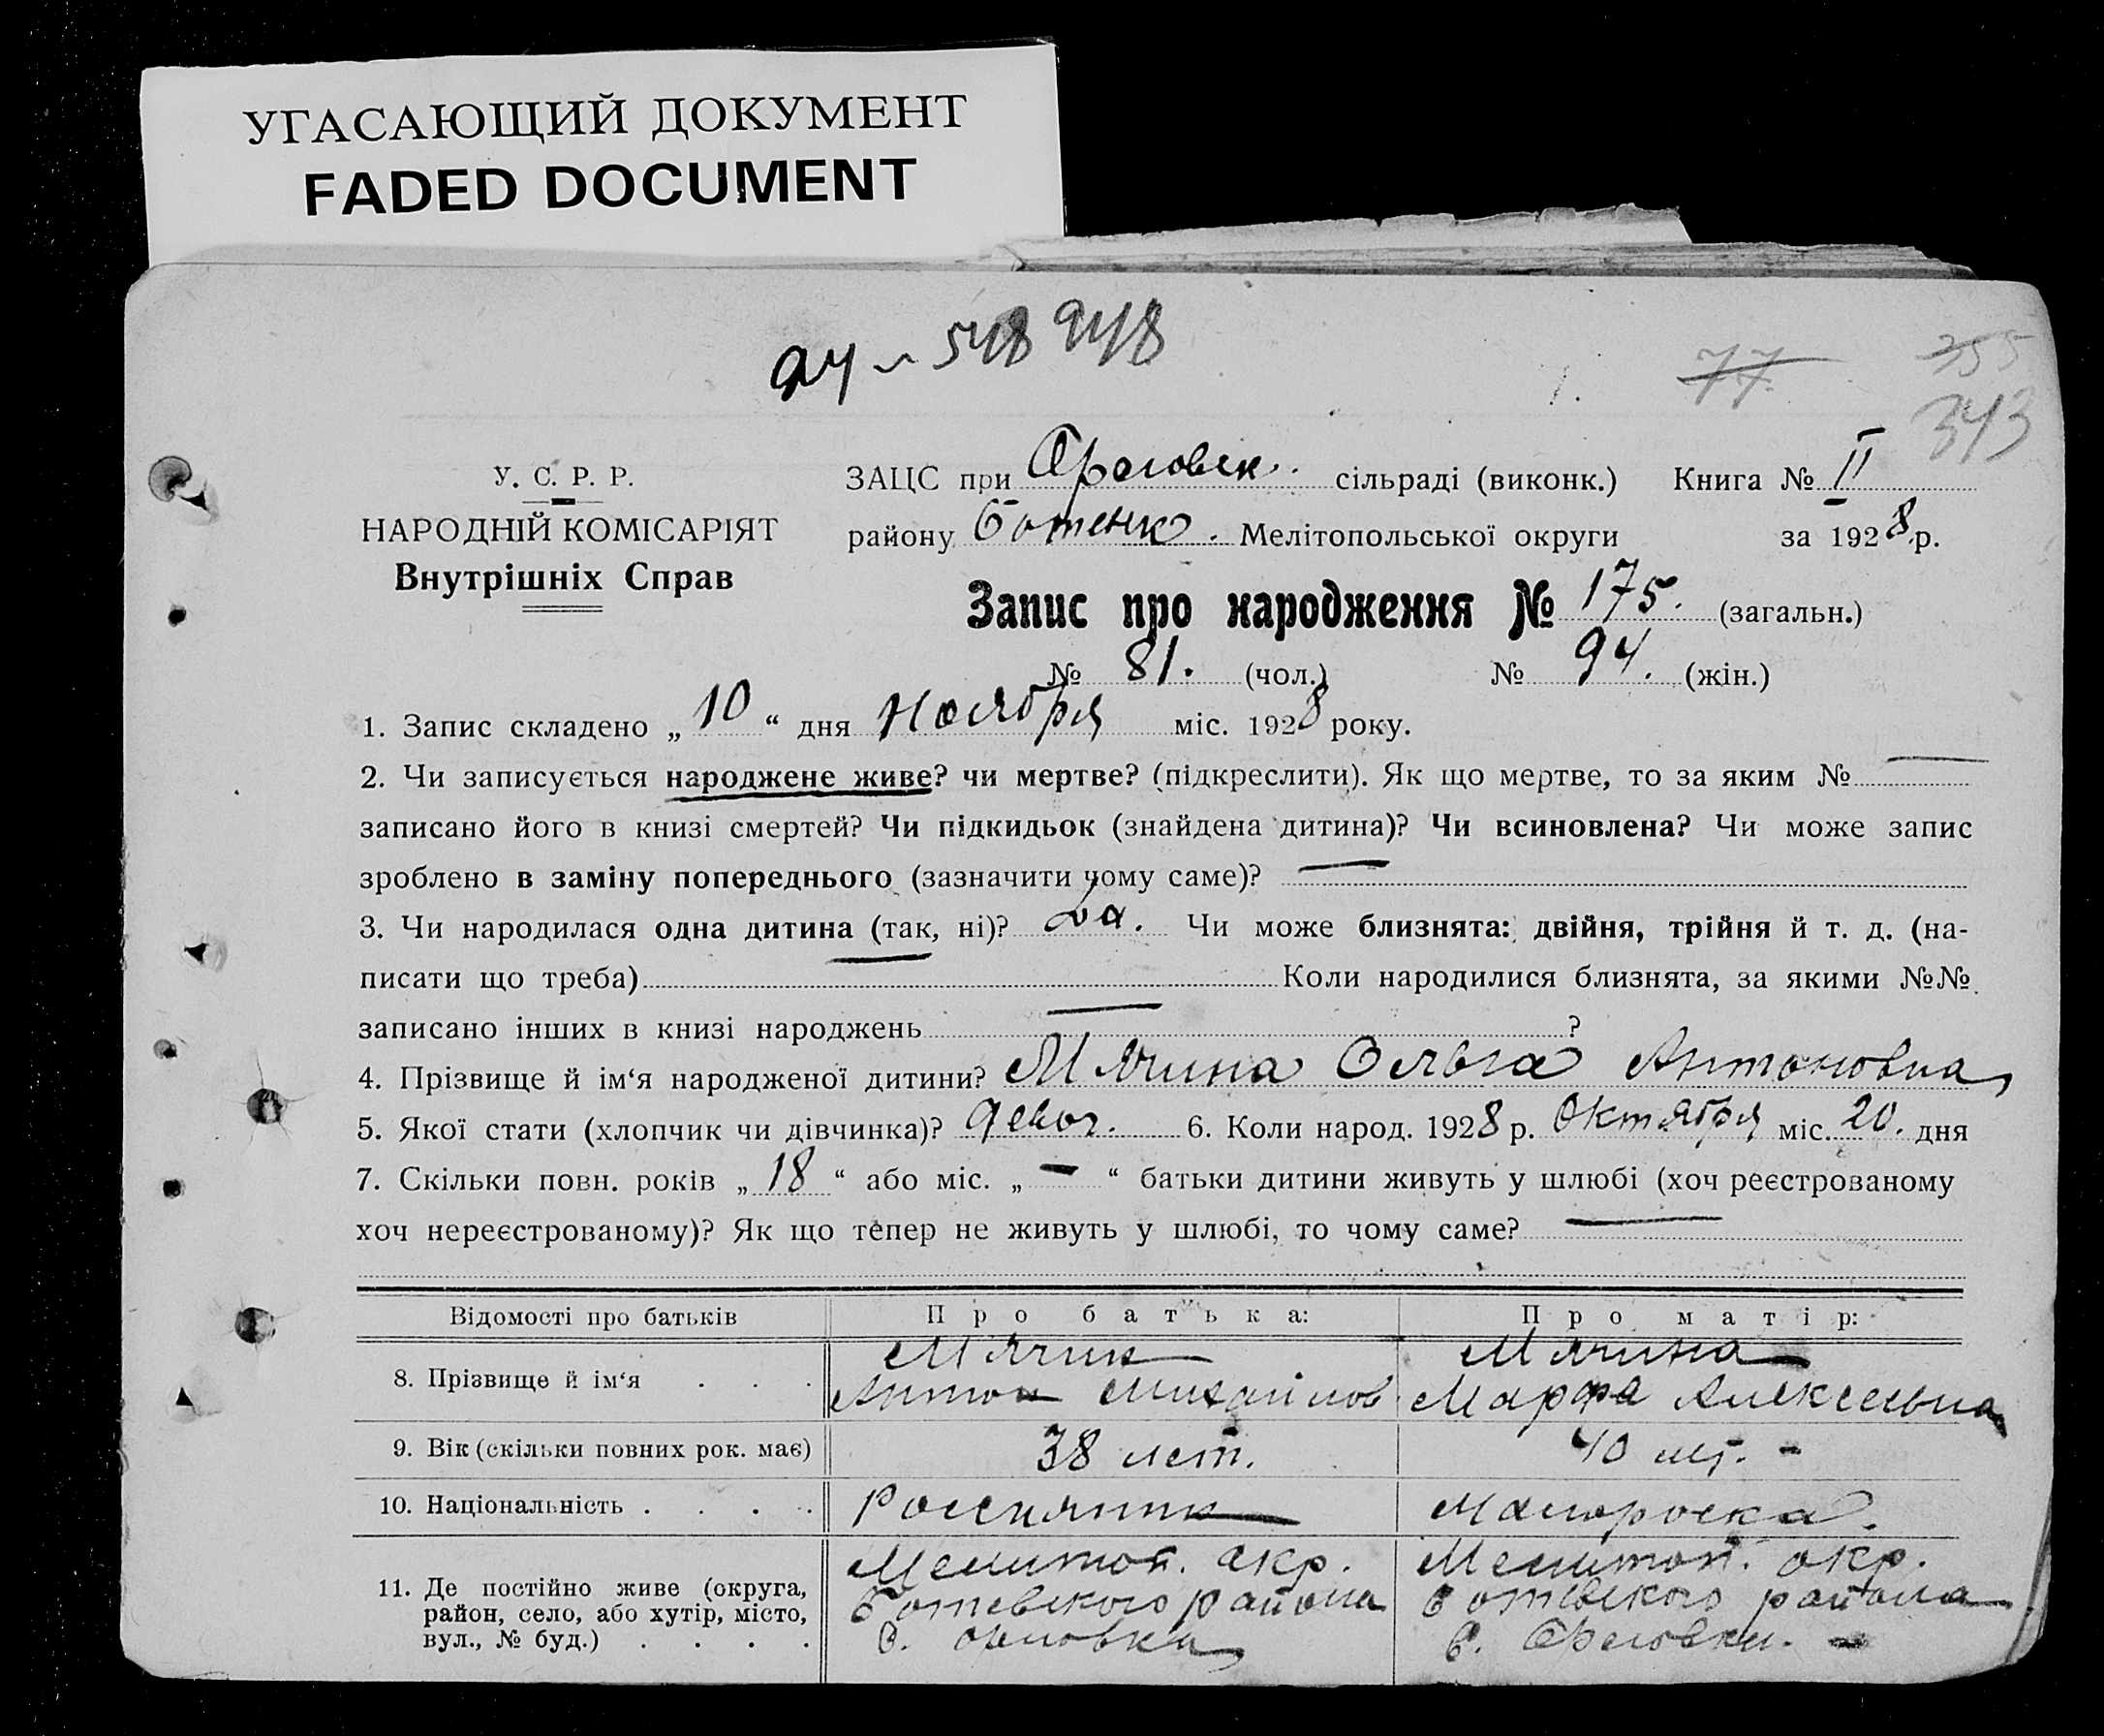 УГАСАЮЩИЙ ДОКУМЕНТ
FADED DOCUMENT
94 ~ 548 948
77
355
343
У. С. Р. Р.
НАРОДНІЙ КОМІСАРІЯТ
Внутрішніх Справ
ЗАЦС при Орловск. сільраді (виконк.) Книга № II
району Ботевск. Мелітопольської округи за 1928 р.
Запис про народження № 175. (загальн.)
№ 81. (чол.) № 94. (жін.)
1. Запис складено „ 10 “ дня Ноября міс. 1928 року.
2. Чи записується народжене живе? чи мертве? (підкреслити). Як що мертве, то за яким № —
записано його в книзі смертей? Чи підкидьок (знайдена дитина)? Чи всиновлена? Чи може запис
зроблено в заміну попереднього (зазначити чому саме)? —
3. Чи народилася одна дитина (так, ні)? Да. Чи може близнята: двійня, трійня й т. д. (на-
писати що треба) — Коли народилися близнята, за якими №№
записано інших в книзі народжень — ?
4. Прізвище й ім‘я народженої дитини? Мячина Ольга Антоновна
5. Якої стати (хлопчик чи дівчинка)? девоч. 6. Коли народ. 1928 р. Октября міс. 20. дня
7. Скільки повн. років „ 18 “ або міс. „ — “ батьки дитини живуть у шлюбі (хоч реєстрованому
хоч нереєстрованому)? Як що тепер не живуть у шлюбі, то чому саме? —
Відомості про батьків Про батька: Про матір:
8. Прізвище й ім‘я . . . Мячин Мячина
Антон Михайлов Марфа Алексеевна
9. Вік (скільки повних рок. має) 38 лет. 40 лет. -
10. Національність . . . . Россиянин Малороска.
11. Де постійно живе (округа, Мелитоп. окр. Мелитоп. окр.
район, село, або хутір, місто, Ботевского района Ботевского района
вул., № буд.) . . . . с. Орловка с. Орловки. -